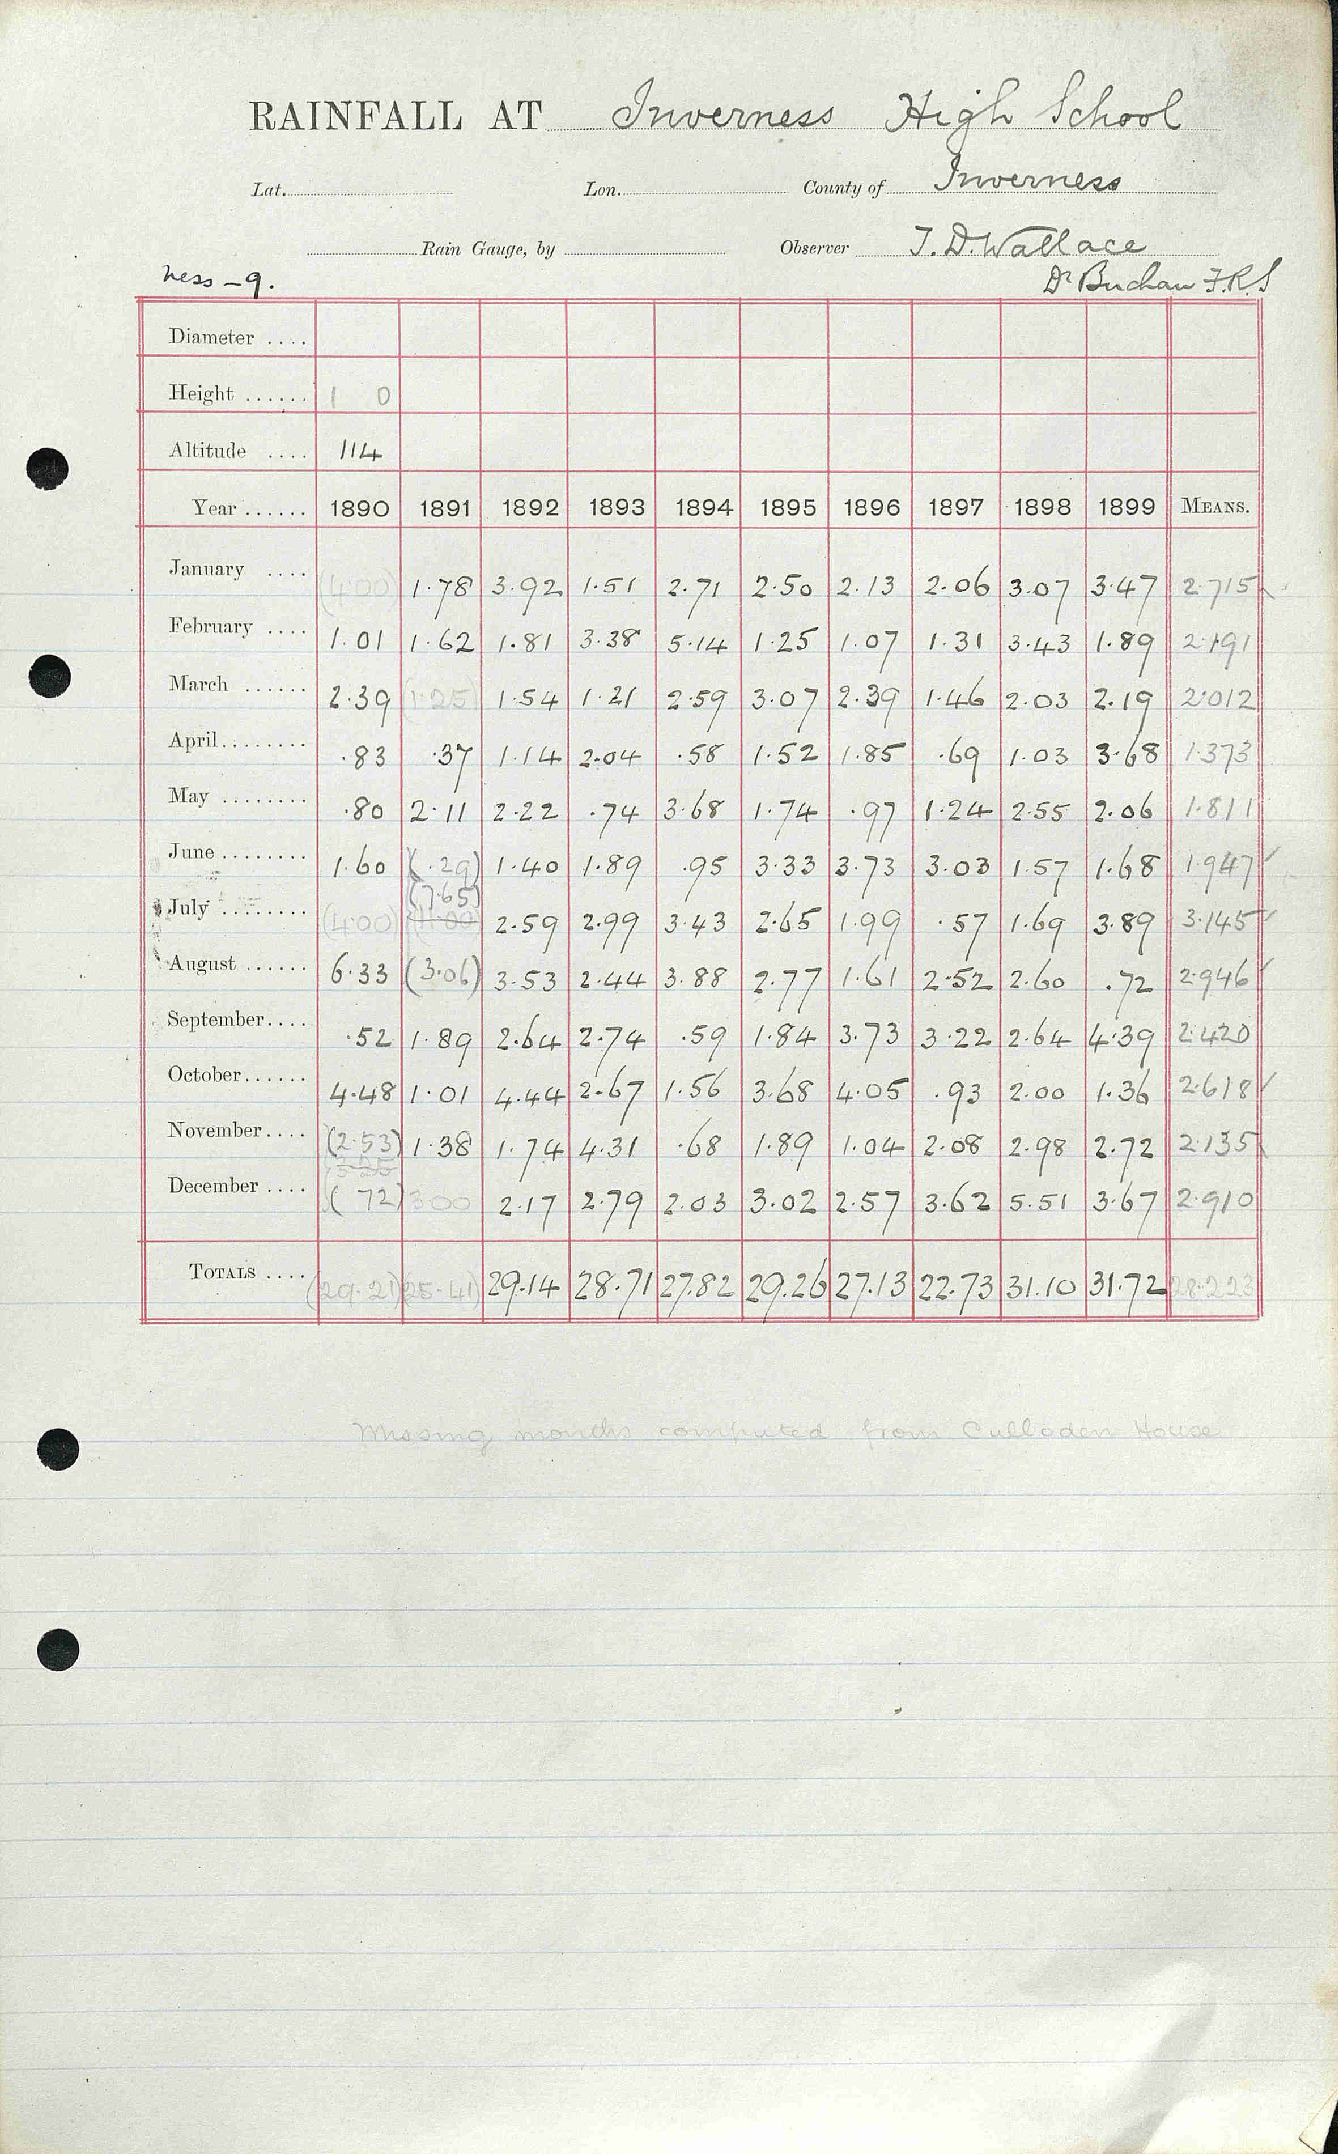 RAINFALL AT Inverness High School
Lat. Lon. County of Inverness
Rain Gauge, by Observer T. D. Wallace
Ness - 9. Dr Buchan F.R.S
Diameter ....
Height ...... 1 0
Altitude .... 114
Year ...... 1890 1891 1892 1893 1894 1895 1896 1897 1898 1899 MEANS.
January .... (4.00) 1.78 3.92 1.51 2.71 2.50 2.13 2.06 3.07 3.47 2.715
February .... 1.01 1.62 1.81 3.38 5.14 1.25 1.07 1.31 3.43 1.89 2.191
March ...... 2.39 (1.25) 1.54 1.21 2.59 3.07 2.39 1.46 2.03 2.19 2.012
April........ .83 .37 1.14 2.04 .58 1.52 1.85 .69 1.03 3.68 1.373
May ........ .80 2.11 2.22 .74 3.68 1.74 .97 1.24 2.55 2.06 1.811
June ........ 1.60 (.29) 1.40 1.89 .95 3.33 3.73 3.03 1.57 1.68 1.947
(7.65)
July ........ (4.00) (11.00) 2.59 2.99 3.43 2.65 1.99 .57 1.69 3.89 3.145
August ...... 6.33 (3.06) 3.53 2.44 3.88 2.77 1.61 2.52 2.60 .72 2.946
September.... .52 1.89 2.64 2.74 .59 1.84 3.73 3.22 2.64 4.39 2.420
October...... 4.48 1.01 4.44 2.67 1.56 3.68 4.05 .93 2.00 1.36 2.618
November.... (2.53) 1.38 1.74 4.31 .68 1.89 1.04 2.08 2.98 2.72 2.135
December .... (72) 3.00 2.17 2.79 2.03 3.02 2.57 3.62 5.51 3.67 2.910
TOTALS .... (29.21) (25.41) 29.14 28.71 27.82 29.26 27.13 22.73 31.10 31.72 28.223
Missing months computed from Culloden House